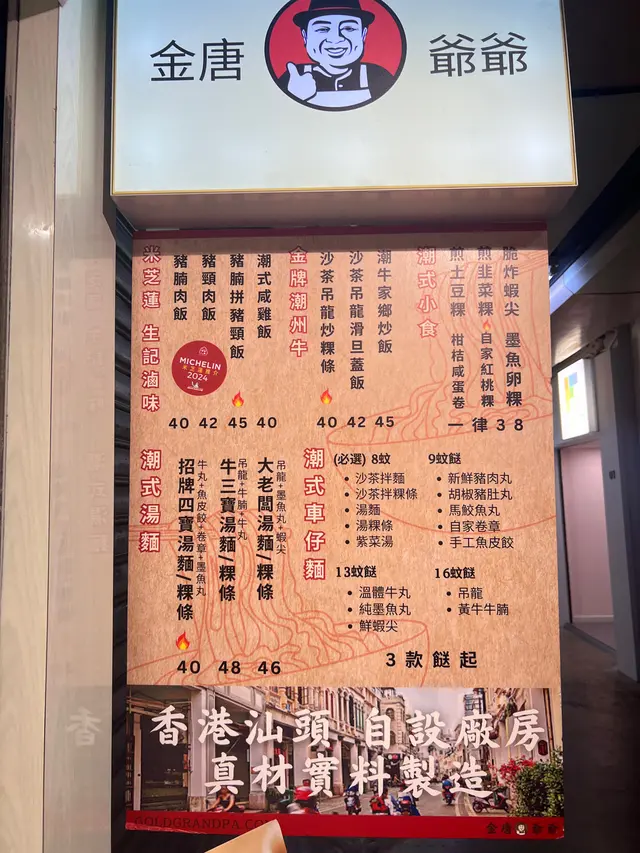 金唐 爺爺
米芝蓮 生記滷味
豬腩肉飯
豬頸肉飯
豬腩拼豬頸飯
潮式咸雞飯
MICHELIN
2024
40 42 45 40
金牌潮州牛
沙茶吊龍炒粿條
沙茶吊龍滑旦蓋飯
潮牛家鄉炒飯
40 42 45
潮式小食
煎土豆粿
煎韭菜粿
脆炸蝦尖
柑桔咸蛋卷
自家紅桃粿
墨魚卵粿
一律38
潮式湯麵
招牌四寶湯麵/粿條
牛丸+魚皮餃+卷章+墨魚丸
牛三寶湯麵/粿條
吊龍+牛腩+牛丸
大老闆湯麵/粿條
吊龍+墨魚丸+蝦尖
40 48 46
潮式車仔麵
(必選) 8蚊
• 沙茶拌麵
• 沙茶拌粿條
• 湯麵
• 湯粿條
• 紫菜湯
9蚊餸
• 新鮮豬肉丸
• 胡椒豬肚丸
• 馬鮫魚丸
• 自家卷章
• 手工魚皮餃
13蚊餸
• 溫體牛丸
• 純墨魚丸
• 鮮蝦尖
16蚊餸
• 吊龍
• 黃牛牛腩
3款餸起
香港汕頭 自設廠房
真材實料製造
GOLDGRANDPA.CO
金唐 爺爺